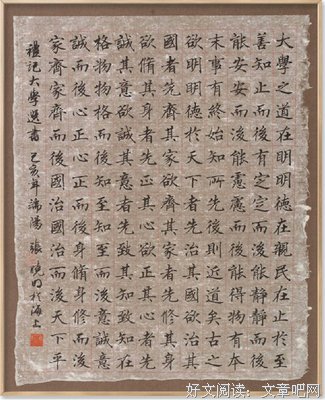 大學之道在明明德在親民在止於至
善知止而後有定定而後能靜靜而後
能安安而後能慮慮而後能得物有本
末事有終始知所先後則近道矣古之
欲明明德於天下者先治其國欲治其
國者先齊其家欲齊其家者先修其身
欲脩其身者先正其心欲正其心者先
誠其意欲誠其意者先致其知致知在
格物物格而後知至知至而後意誠意
誠而後心正心正而後身脩身脩而後
家齊家齊而後國治國治而後天下平
禮記大學選書 己亥年端陽 張曉明於海上
好文阅读：文章吧网